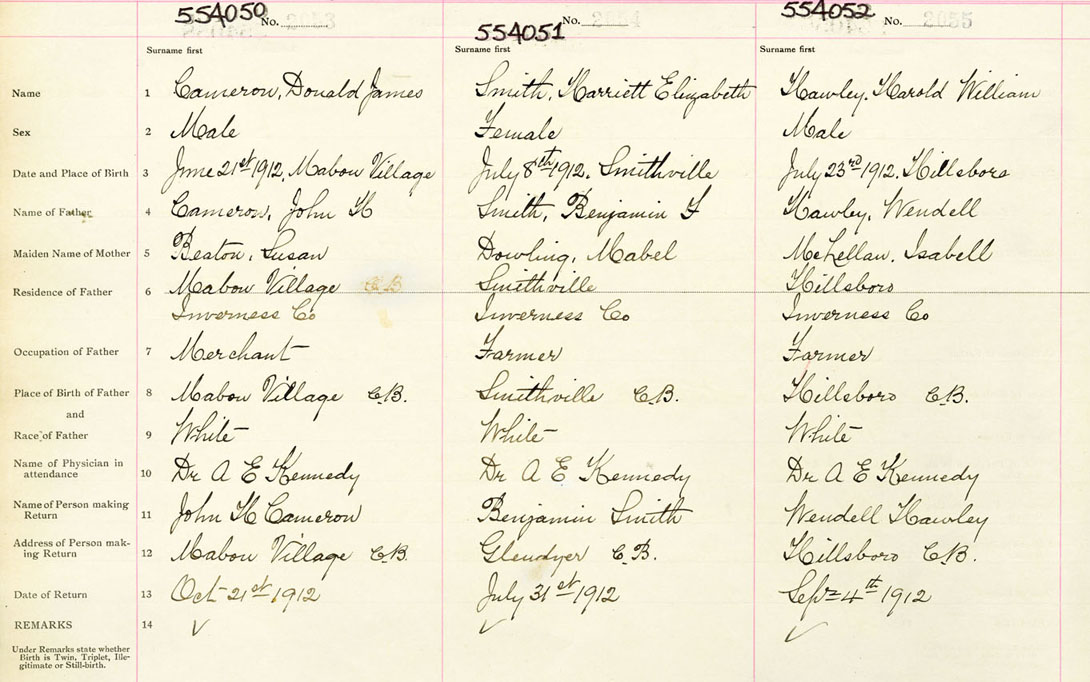 554050 No. 2053
554051 No. 2054
554052 No. 2055
Surname first Surname first Surname first
Name 1 Cameron, Donald James Smith, Harriett Elizabeth Hawley, Harold William
Sex 2 Male Female Male
Date and Place of Birth 3 June 21st 1912, Mabou Village July 8th 1912, Smithville July 23rd 1912, Hillsboro
Name of Father 4 Cameron, John H Smith, Benjamin F Hawley, Wendell
Maiden Name of Mother 5 Beaton, Susan Dowling, Mabel McLellan, Isabell
Residence of Father 6 Mabou Village C.B Smithville Hillsboro
Inverness Co Inverness Co Inverness Co
Occupation of Father 7 Merchant Farmer Farmer
Place of Birth of Father 8 Mabou Village C.B. Smithville C.B. Hillsboro C.B.
and
Race of Father 9 White White White
Name of Physician in
attendance 10 Dr A E Kennedy Dr A E Kennedy Dr A E Kennedy
Name of Person making
Return 11 John H Cameron Benjamin Smith Wendell Hawley
Address of Person mak-
ing Return 12 Mabou Village C.B. Glendyer C.B. Hillsboro C.B.
Date of Return 13 Oct 21st 1912 July 31st 1912 Sept 4th 1912
REMARKS 14
Under Remarks state whether
Birth is Twin, Triplet, Ille-
gitimate or Still-birth.